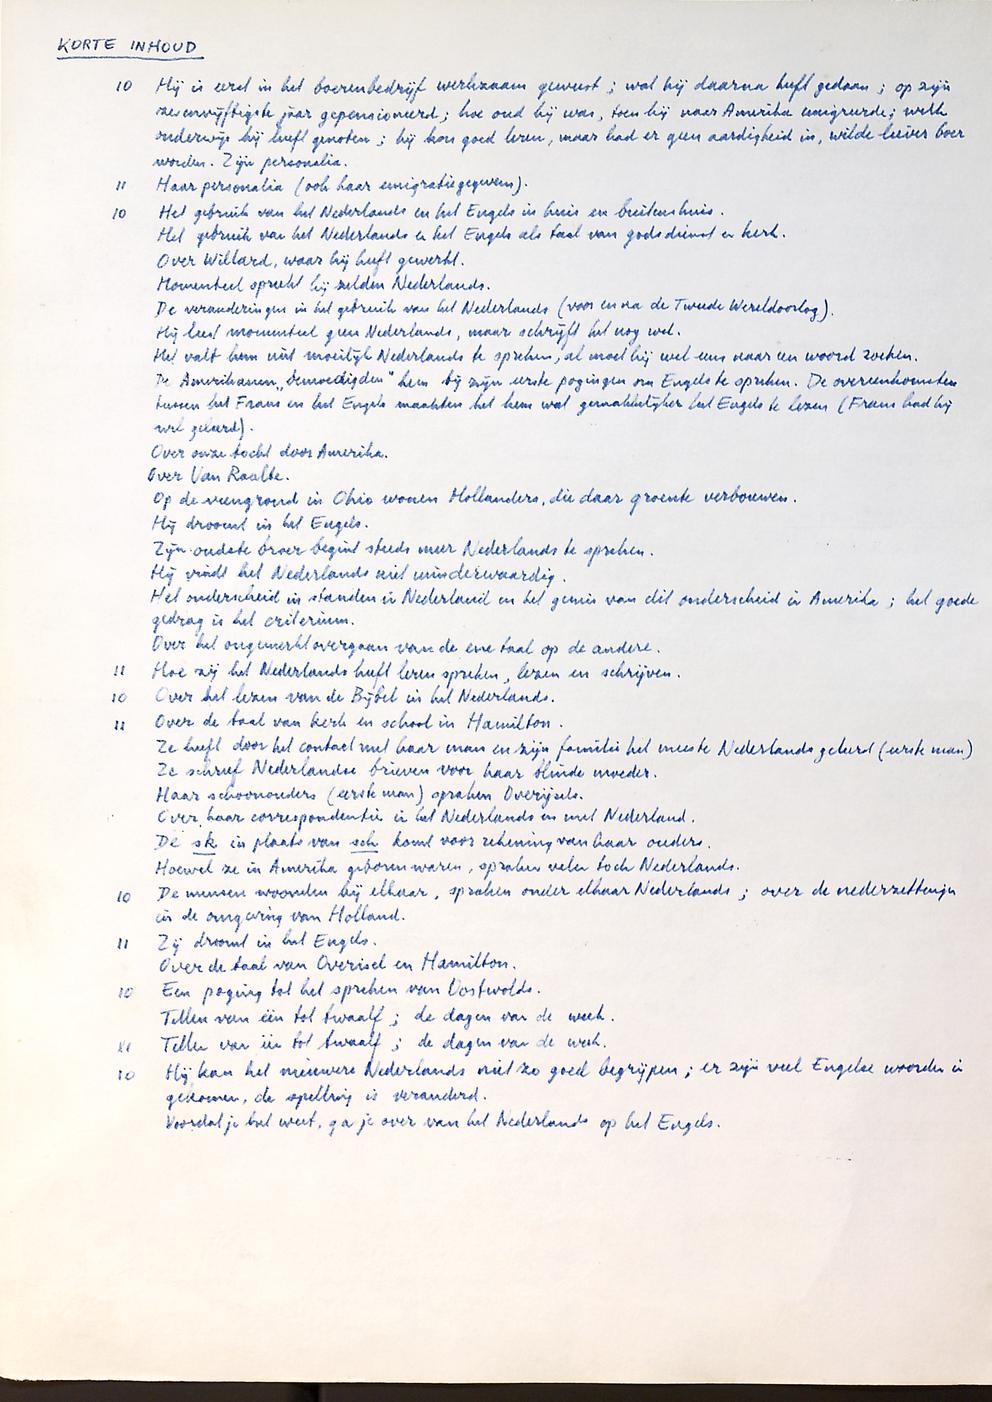 KORTE INHOUD
10 Hij is eerst in het boerenbedrijf werkzaam geweest ; wat hij daarna heeft gedaan ; op zijn
zesenvijftigste jaar gepensioneerd ; hoe oud hij was, toen hij naar Amerika emigreerde ; welk
onderwijs hij heeft genoten ; hij kon goed leren, maar had er geen aardigheid in, wilde liever boer
worden. Zijn personalia.
11 Haar personalia (ook haar emigratiegegevens).
10 Het gebruik van het Nederlands en het Engels in huis en buitenshuis.
Het gebruik van het Nederlands en het Engels als taal van godsdienst en kerk.
Over Willard, waar hij heeft gewerkt.
Momenteel spreekt hij zelden Nederlands.
De veranderingen in het gebruik van het Nederlands (voor en na de Tweede Wereldoorlog).
Hij leest momenteel geen Nederlands, maar schrijft het nog wel.
Het valt hem niet moeilijk Nederlands te spreken, al moet hij wel eens naar een woord zoeken.
De Amerikanen „bemoedigden" hem bij zijn eerste pogingen om Engels te spreken. De overeenkomsten
tussen het Frans en het Engels maakten het hem wat gemakkelijker het Engels te lezen (Frans had hij
wel geleerd).
Over onze tocht door Amerika.
Over Van Raalte.
Op de veengrond in Ohio wonen Hollanders, die daar groente verbouwen.
Hij droomt in het Engels.
Zijn oudste broer begint steeds meer Nederlands te spreken.
Hij vindt het Nederlands niet minderwaardig.
Het onderscheid in standen in Nederland en het gemis van dit onderscheid in Amerika ; het goede
gedrag is het criterium.
Over het ongemerkt overgaan van de ene taal op de andere.
11 Hoe zij het Nederlands heeft leren spreken, lezen en schrijven.
10 Over het lezen van de Bijbel in het Nederlands.
11 Over de taal van kerk en school in Hamilton.
Ze heeft door het contact met haar man en zijn familie het meeste Nederlands geleerd (eerste man)
Ze schreef Nederlandse brieven voor haar blinde moeder.
Haar schoonouders (eerste man) spraken Overijsels.
Over haar correspondentie in het Nederlands en met Nederland.
De sk in plaats van sch komt voor rekening van haar ouders.
Hoewel ze in Amerika geboren waren, spraken velen toch Nederlands.
10 De mensen woonden bij elkaar, spraken onder elkaar Nederlands ; over de nederzettingen
in de omgeving van Holland.
11 Zij droomt in het Engels.
Over de taal van Overisel en Hamilton.
10 Een poging tot het spreken van Oostwolds.
Tellen van één tot twaalf ; de dagen van de week.
11 Tellen van één tot twaalf ; de dagen van de week.
10 Hij kan het nieuwere Nederlands niet zo goed begrijpen ; er zijn veel Engelse woorden in
gekomen, de spelling is veranderd.
Voordat je het weet, ga je over van het Nederlands op het Engels.